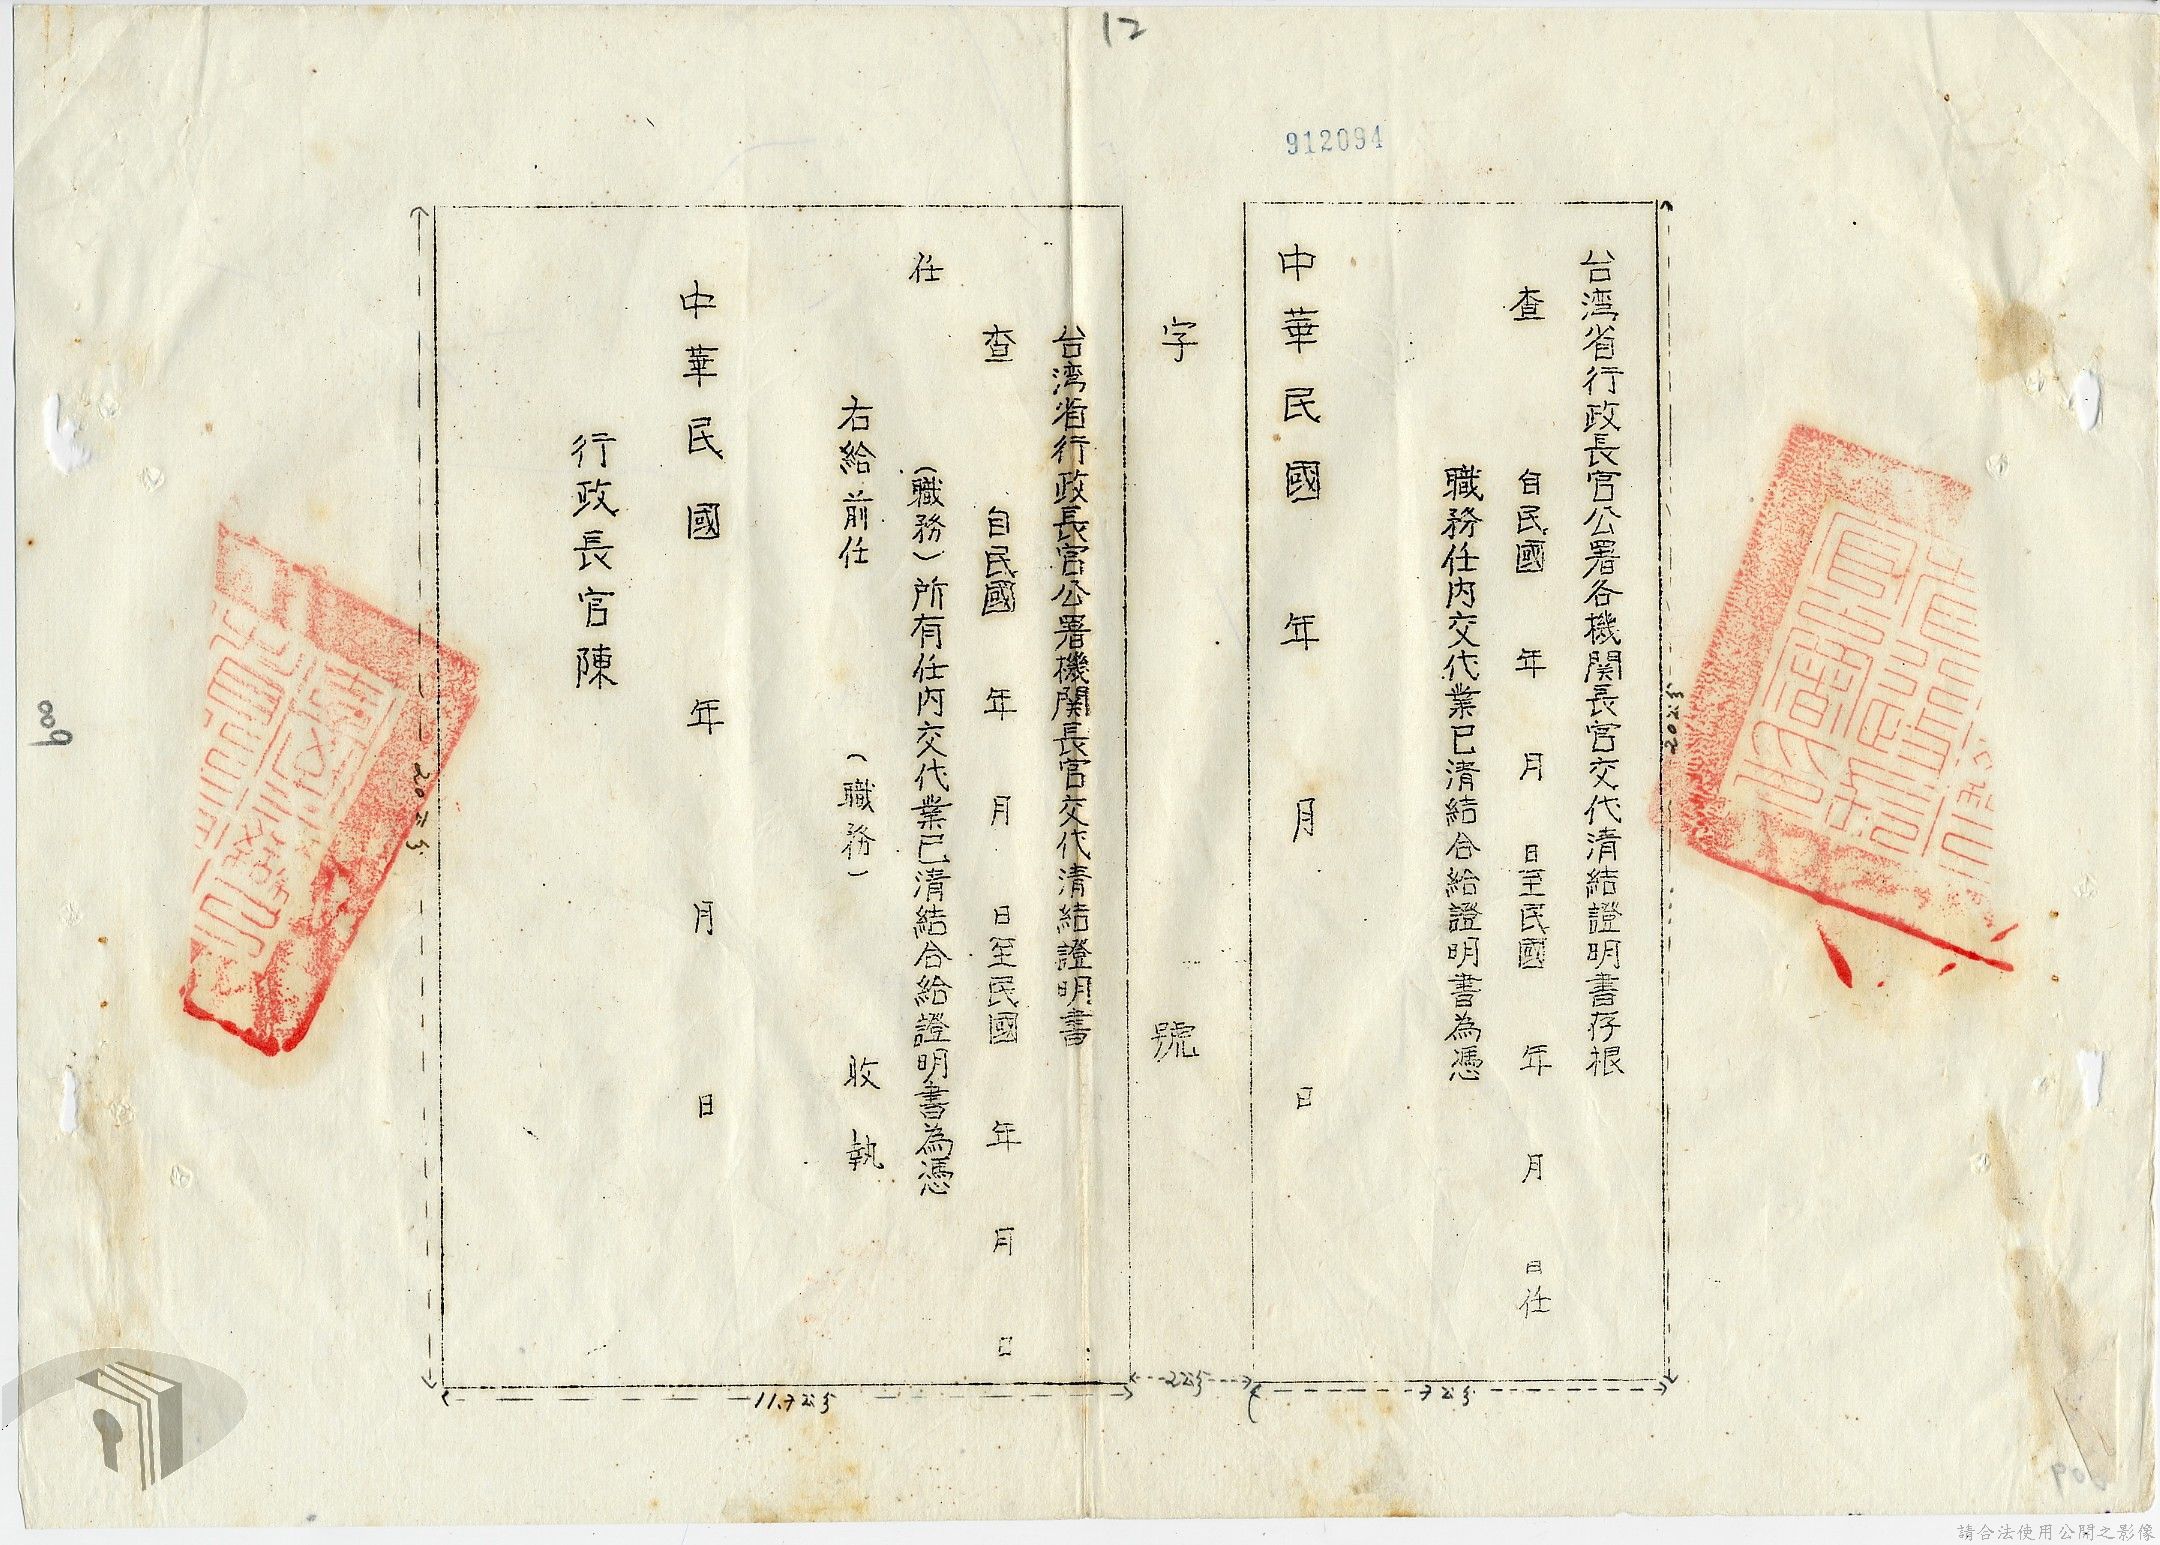 12
912094
台湾省行政長官公署各機関長官交代清結證明書存根
查　自民國　年　月　日至民國　年　月　日任
職務任内交代業已清結合給證明書為憑
中華民國　年　月　日
字　號
台湾省行政長官公署機関長官交代清結證明書
查　自民國　年　月　日至民國　年　月　日
任　(職務)所有任内交代業已清結合給證明書為憑
右給前任　(職務)　收執
中華民國　年　月　日
行政長官陳
20公分
20公分
11.7公分
2公分
7公分
009
請合法使用公開之影像